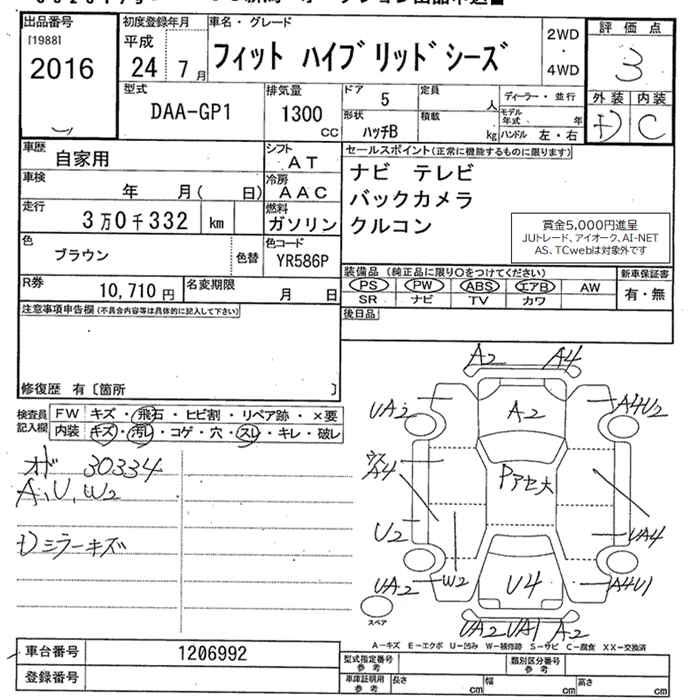 出品番号
[1988]
2016
初度登録年月
平成
24 7 月
車名・グレード
フィット ハイブリッドシーズ
2WD
・
4WD
評価点
3
外装 内装
D C
型式
DAA-GP1
排気量
1300
CC
ドア 5
定員 人
ディーラー・並行
形状
ハッチB
積載 kg
モデル年式 年
ハンドル 左・右
車歴
自家用
シフト
AT
車検
年 月( 日)
冷房
AAC
走行
3万0千332 km
燃料
ガソリン
色
ブラウン
色替
色コード
YR586P
R券
10,710 円
名変期限
月 日
セールスポイント(正常に機能するものに限ります)
ナビ テレビ
バックカメラ
クルコン
賞金5,000円進呈
JUトレード、アイオーク、AI-NET
AS、TCwebは対象外です
装備品(純正品に限り○をつけてください)
PS PW ABS エアB AW
SR ナビ TV カワ
新車保証書
有・無
注意事項申告欄(不具合内容等は具体的に記入して下さい)
後日品
修復歴 有〔箇所 〕
検査員
記入欄
FW キズ・飛石・ヒビ割・リペア跡・×要
内装 キズ・汚レ・コゲ・穴・スレ・キレ・破レ
オド 30334
A、U、W2
ミラーキズ
A2 A4
UA2 A2 A4U2
A4
Pアセ大
U2 UA4
UA2 W2 U4 A4U1
UA2 UA1 A2
スペア
A－キズ E－エクボ U－凹み W－補修跡 S－サビ C－腐食 XX－交換済
車台番号 1206992
登録番号
型式指定番号
参考
類別区分番号
参考
車庫証明用
参考
長さ cm 幅 cm 高さ cm